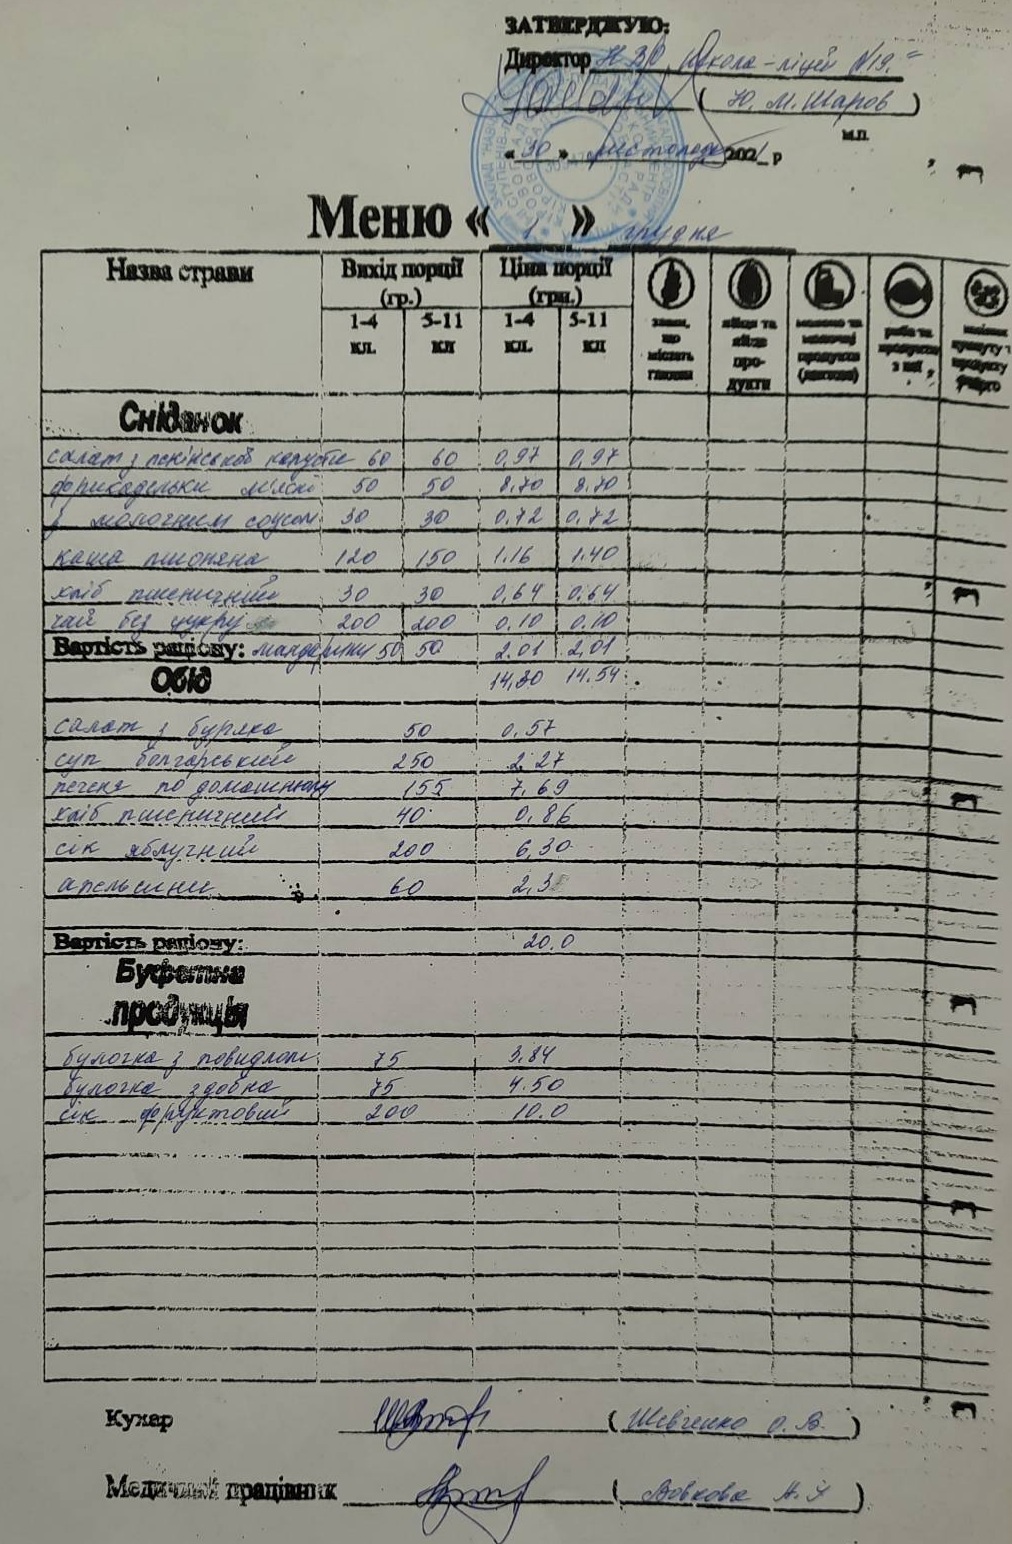 ЗАТВЕРДЖУЮ:
Директор НЗО „Школа-ліцей №19."
( Ю. М. Шаров )
м.п.
« 30 » листопада 2021 р
Меню « 1 » грудня
Назва страви Вихід порції (гр.) Ціна порції (грн.)
1-4 кл. 5-11 кл 1-4 кл. 5-11 кл
злаки, що містять глютен
яйця та яйце продукти
молоко та молочні продукти (лактоза)
риба та продукти з неї
Сніданок
салат з пекінської капусти 60 60 0,97 0,97
фрикадельки м'ясні 50 50 8.70 8.70
з молочним соусом 30 30 0.72 0.72
каша пшоняна 120 150 1.16 1.40
хліб пшеничний 30 30 0,64 0,64
чай без цукру 200 200 0.10 0.10
Вартість раціону: мандарини 50 50 2.01 2.01
Обід 14,30 14.54
салат з буряка 50 0.57
суп болгарський 250 2.27
печеня по домашньому 155 7.69
хліб пшеничний 40 0,86
сік яблучний 200 6,30
апельсини 60 2,3
Вартість раціону: 20.0
Буфетна
продукція
булочка з повидлом 75 3.84
булочка здобна 75 4.50
сік фруктовий 200 10.0
Кухар ( Шевченко О. В. )
Медичний працівник ( Вовкова )